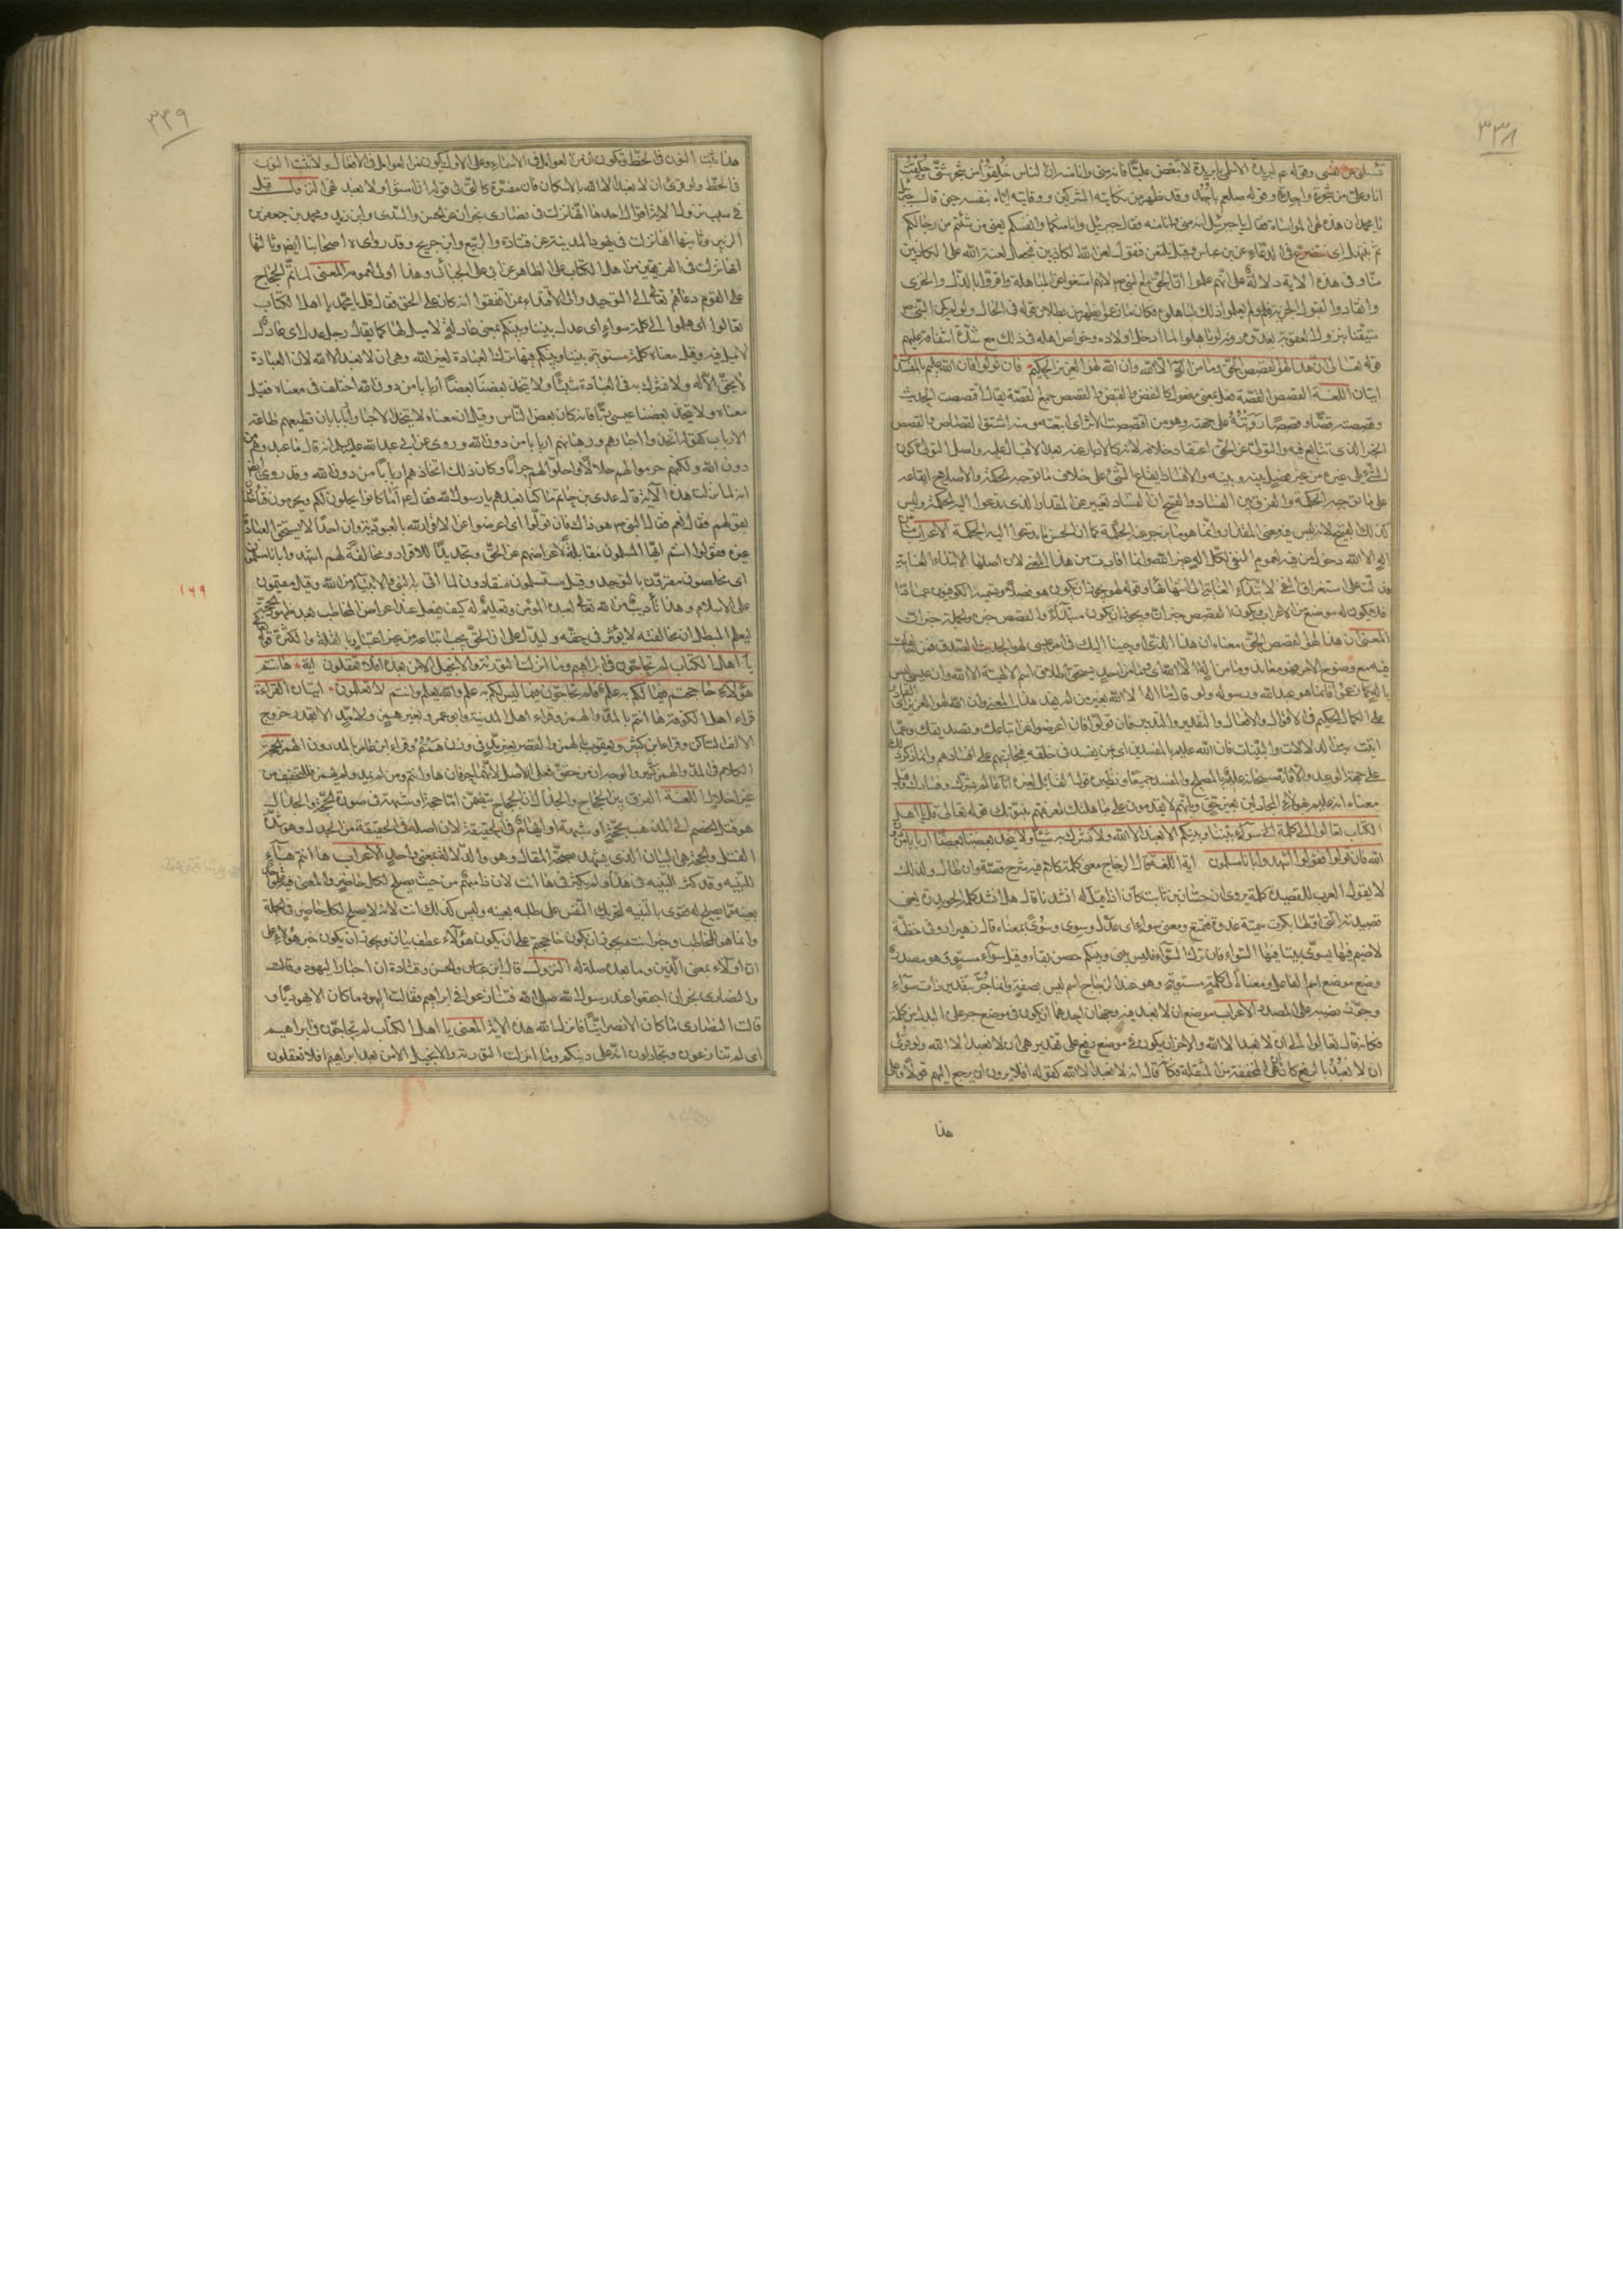 ٣٣٨
تسئلنى عن نفسى وقوله عم لبريدة الاسلمى يا بريدة لا تبغض عليّا فانه منى وانا منه ان الناس خلقوا من شجر شتى وخلقت
انا وعلى من شجرة واحدة وقوله صلعم باُحُد وقد ظهر من نكايته المشركين ووقايته اياه بنفسه حتى قال جبرئيل
يا محمد ان هذه لهى المواساة فقال يا جبرئيل انه منى وانا منه فقال جبرئيل وانا منكما وانفسكم يعنى من شئتم من رجالكم
ثم نبتهل اى نتضرع فى الدعاء عن ابن عباس وقيل نلتعن فنقول لعن الله الكاذبين فنجعل لعنة الله على الكاذبين
منا وفى هذه الاية دلالة على انهم علموا ان الحق مع النبى لانهم امتنعوا عن المباهلة واقروا بالذل والخزى
وانقادوا لقبول الجزية فلو لم يعلموا ذلك لباهلوه فكان ما زعموا يظهر من بطلان قوله فى الحال ولو لم يكن النبى
متيقنا بنزول العقوبة بعدوه دونه لو باهلوا لما ادخل اولاده وخواص اهله فى ذلك مع شدة اشفاقه عليهم
قوله تعالى ان هذا لهو القصص الحق وما من اله الا الله وان الله لهو العزيز الحكيم فان تولوا فان الله عليم بالمفسدين
ايتان اللغة القصص القصة فعل بمعنى مفعول كالنقض والقبض والقصص جمع القصة يقال اقتصصت الحديث
وقصصته قصًّا وقصصًا رَوَيْتُهُ على جهته وهو من اقتصصت الاثر اى اتبعته ومنه اشتق القصاص والقصص
الخبر الذى تتابع فيه والتولى عن الحق اعتقاد خلافه لانه كالادبار عنه بعد الاقبال عليه واصل التولى كون
الشئ يلى غيره من غير فصل بينه وبينه والافساد ايقاع الشئ على خلاف ما توجبه الحكمة والاصلاح ايقاعه
على ما توجبه الحكمة والفرق بين الفساد والقبيح ان الفساد تغيير عن المقدار الذى تدعوا اليه الحكمة وليس
كذلك القبيح لانه ليس فيه معنى المقدار وانما هو ما تزجر عنه الحكمة كما ان الحسن ما تدعوا اليه الحكمة الاعراب من
اله الا الله دخول من فيه لعموم النفى لكل اله غير الله وانما افادت من هذا المعنى لان اصلها لابتداء الغاية
فدلت على استغراق النفى لابتداء الغاية الى انتهائها وقوله لهو يجوز ان يكون هو فصلا ويسميه الكوفيون عمادا
فلا يكون له موضع من الاعراب ويكون القصص خبر ان ويجوز ان يكون مبتداءً والقصص خبره والجملة خبر ان
المعنى ان هذا لهو القصص الحق معناه ان هذا الذى اوحينا اليك فى امر عيسى لهو الحديث الصدق فمن خالفك
فيه مع وضوح الامر فهو معاند وما من اله الا الله اى وما من احد يستحق اطلاق اسم الالهية الا الله وان عيسى ليس
باله كما زعموا وانما هو عبد الله ورسوله ولو قال ما اله الا الله بغير من لم يفد هذا المعنى وان الله لهو العزيز اى القادر
على الكمال الحكيم فى الاقوال والافعال والتقدير والتدبير فان تولوا فان اعرضوا عن اتباعك وتصديقك وعما
اتيت به من الدلالات والبينات فان الله عليم بالمفسدين اى بمن يفسد فى خلقه فيجازيهم على افسادهم وانما ذكر ذلك
على جهة الوعيد والا فانه سبحانه عليم بالمصلح والمفسد جميعا ونظيره قول القائل لغيره انا عالم بشرك وفسادك وقيل
معناه انه عليم بهؤلاء المجادلين بغير حق وبانهم لا يقدمون على مباهلتك لمعرفتهم بنبوتك قوله تعالى قل يا اهل
الكتاب تعالوا الى كلمة سوآء بيننا وبينكم الا نعبد الا الله ولا نشرك به شيئا ولا يتخذ بعضنا بعضًا اربابا من دون
الله فان تولوا فقولوا اشهدوا بانا مسلمون اية اللغة قال الزجاج معنى كلمة كلام فيه شرح قصة وان طال ولذلك
لا يقول العرب للقصيدة كلمة يروى ان حسّان بن ثابت كان اذا قيل له انشدنا قال هل انشد كلمة الحويدرة يعنى
قصيدته التى اولها بكرت سمية غدوة فتمتع ومعنى سواء اى عدل وسوى وسُوىً بمعناه قال زهير ارونى خطة
لا ضيم فيها يسوّى بيننا فيها السواء فان ترك السواء فليس بينى وبينكم حصن بقاء وقيل سوآء مستوٍ وهو مصدر
وضع موضع اسم الفاعل ومعناه الى كلمة مستوية وهو عند الزجاج اسم ليس بصفة وانما جُرَّ بتقدير ذات سوآء
وجوّز نصبه على المصدر الاعراب موضع ان لا نعبد فيه وجهان احدهما ان يكون فى موضع جر على البدل من كلمة
فكانه قال تعالوا الى ان لا نعبد الا الله والاخر ان يكون فى موضع رفع على تقدير هى ان لا نعبد الا الله ولو قُرِئَ
ان لا نَعْبُدُ بالرفع كان ان هى المخففة من المثقلة فكانه قال انه لا نعبد الا الله كقوله افلا يرون ان يرجع اليهم قولًا وعلى
هذا
٣٣٩
هذا تثبت النون فى الخط وتكون ان من العوامل فى الاسماء وعلى الاول يكون من العوامل فى الافعال ولا تثبت النون
فى الخط ولو قرئ ان لا نعبد الا الله بالاسكان فان مفسّرة كالتى فى قوله ان امشوا ولا نعبد نهى النزول قيل
فى سبب نزول الاية اقوال احدها انها نزلت فى نصارى نجران عن الحسن والسدى وابن زيد ومحمد بن جعفر بن
الزبير وثانيها انها نزلت فى يهود المدينة عن قتادة والربيع وابن جريح وقد رواه اصحابنا ايضا وثالثها
انها نزلت فى الفريقين من اهل الكتاب على الظاهر عن ابى على الجبائى وهذا اولى لعمومه المعنى لما تمّ الحجاج
على القوم دعاهم تعالى الى التوحيد والى الاقتداء بمن اتفقوا انه كان على الحق فقال قل يا محمد يا اهل الكتاب
تعالوا اى هلموا الى كلمة سواء اى عدل بيننا وبينكم بمعنى عادلة لا ميل فيها كما يقال رجل عدل اى عادل
لا ميل فيه وقيل معناه كلمة مستوية بيننا وبينكم فيها ترك العبادة لغير الله وهى ان لا نعبد الا الله لان العبادة
لا تحق الا له ولا نشرك به فى العبادة شيئًا ولا يتخذ بعضنا بعضًا اربابا من دون الله اختلف فى معناه فقيل
معناه ولا يتخذ بعضنا عيسى ربا فانه كان بعض الناس وقيل ان معناه لا يتخذ الاحبار اربابا بان نطيعهم طاعة
الارباب كقوله اتخذوا احبارهم ورهبانهم اربابا من دون الله وروى عن ابى عبد الله عليه السلام انه قال ما عبدوهم من
دون الله ولكنهم حرموا لهم حلالًا واحلّوا لهم حرامًا وكان ذلك اتخاذهم اربابًا من دون الله وقد روى ايضا
انه لما نزلت هذه الآية قال عدى بن حاتم ما كنا نعبدهم يا رسول الله فقال عم اما كانوا يحلون لكم ويحرمون فتأخذون
بقولهم فقال نعم فقال النبى هو ذاك فان تولّوا اى اعرضوا عن الاقرار لله بالعبودية وان احدًا لا يستحق العبادة
غيره فقولوا انتم ايها المسلمون مقابلة لاعراضهم عن الحق وتجديدًا للاقرار ومخالفةً لهم اشهدوا بانا مسلمون
اى مخلصون مقرون بالتوحيد وقيل مستسلمون منقادون لما اتى به النبى والانبياء من الله وقيل مقيمون
على الاسلام وهذا تأديب من الله تعالى لعبده المؤمن وتعليم له كيف يفعل عند اعراض المخاطب بعد ظهور الحجة
ليعلم المبطل ان مخالفته لا يؤثر فى حقه وليدل على ان الحق يجب اتباعه من غير اعتبار بالقلة والكثرة قوله
يآ اهل الكتاب لم تحاجون فى ابراهيم وما انزلت التورية والانجيل الا من بعده افلا تعقلون اية هآ انتم
هؤلاء حاججتم فيما لكم به علم فلم تحاجون فيما ليس لكم به علم والله يعلم وانتم لا تعلمون ايتان القراءة
قرأء اهل الكوفة ها انتم بالمد والهمز وقرأء اهل المدينة وابو عمرو بغير همز ولا مدّ الا بقدر خروج
الالف الساكن وقرأء ابن كثير ويعقوب بالهمز والقصر بغير مدّ فى وزن هَعَنْتُم وقرأ ابن عامر بالمد دون الهمز الحجة
الكلام فى المد والهمز كثير والوجه ان من حقق فعلى الاصل لانهما حرفان ها وانتم ومن لم يمد ولم يهمز فللتخفيف من
غير اخلال اللغة الفرق بين الحجاج والجدال ان الحجاج يتضمن اما حجة او شبهة فى صورة الحجة والجدال
هو فتل الخصم الى المذهب بحجة او شبهة او ايهام فى الحقيقة لان اصله فى الحقيقة من الجدل وهو شدة
الفتل والحجة هى البيان الذى يشهد بصحّة المقال وهو والدلالة بمعنى واحد الاعراب ها انتم هآء
للتنبيه وقد كثر التنبيه فى هذا ولم يكثر فى ها انت لان ذا مبهم من حيث يصلح لكل حاضر والمعنى فيه على
بعينه مما يصلح له فقوى بالتنبيه لتحريك النفس على طلبه بعينه وليس كذلك انت لانه لا يصلح لكل حاضر فى الجملة
وانما هو للمخاطب وخبر انتم يجوز ان يكون حاججتم على ان يكون هؤلآء عطف بيان ويجوز ان يكون خبره هؤلاء على
ان اولآء بمعنى الذين وما بعده صلة له النزول قال ابن عباس والحسن وقتادة ان احبار اليهود وقالت
والنصارى نجران اجتمعوا عند رسول الله صلى الله فتنازعوا فى ابراهيم فقالت اليهود ما كان الا يهوديًّا و
قالت النصارى ما كان الا نصرانيًّا فانزل الله هذه الاية المعنى يا اهل الكتاب لم تحاجون فى ابراهيم
اى لم تنازعون وتجادلون انه على دينكم وما انزلت التورية والانجيل الا من بعد ابراهيم افلا تعقلون
١٦٩